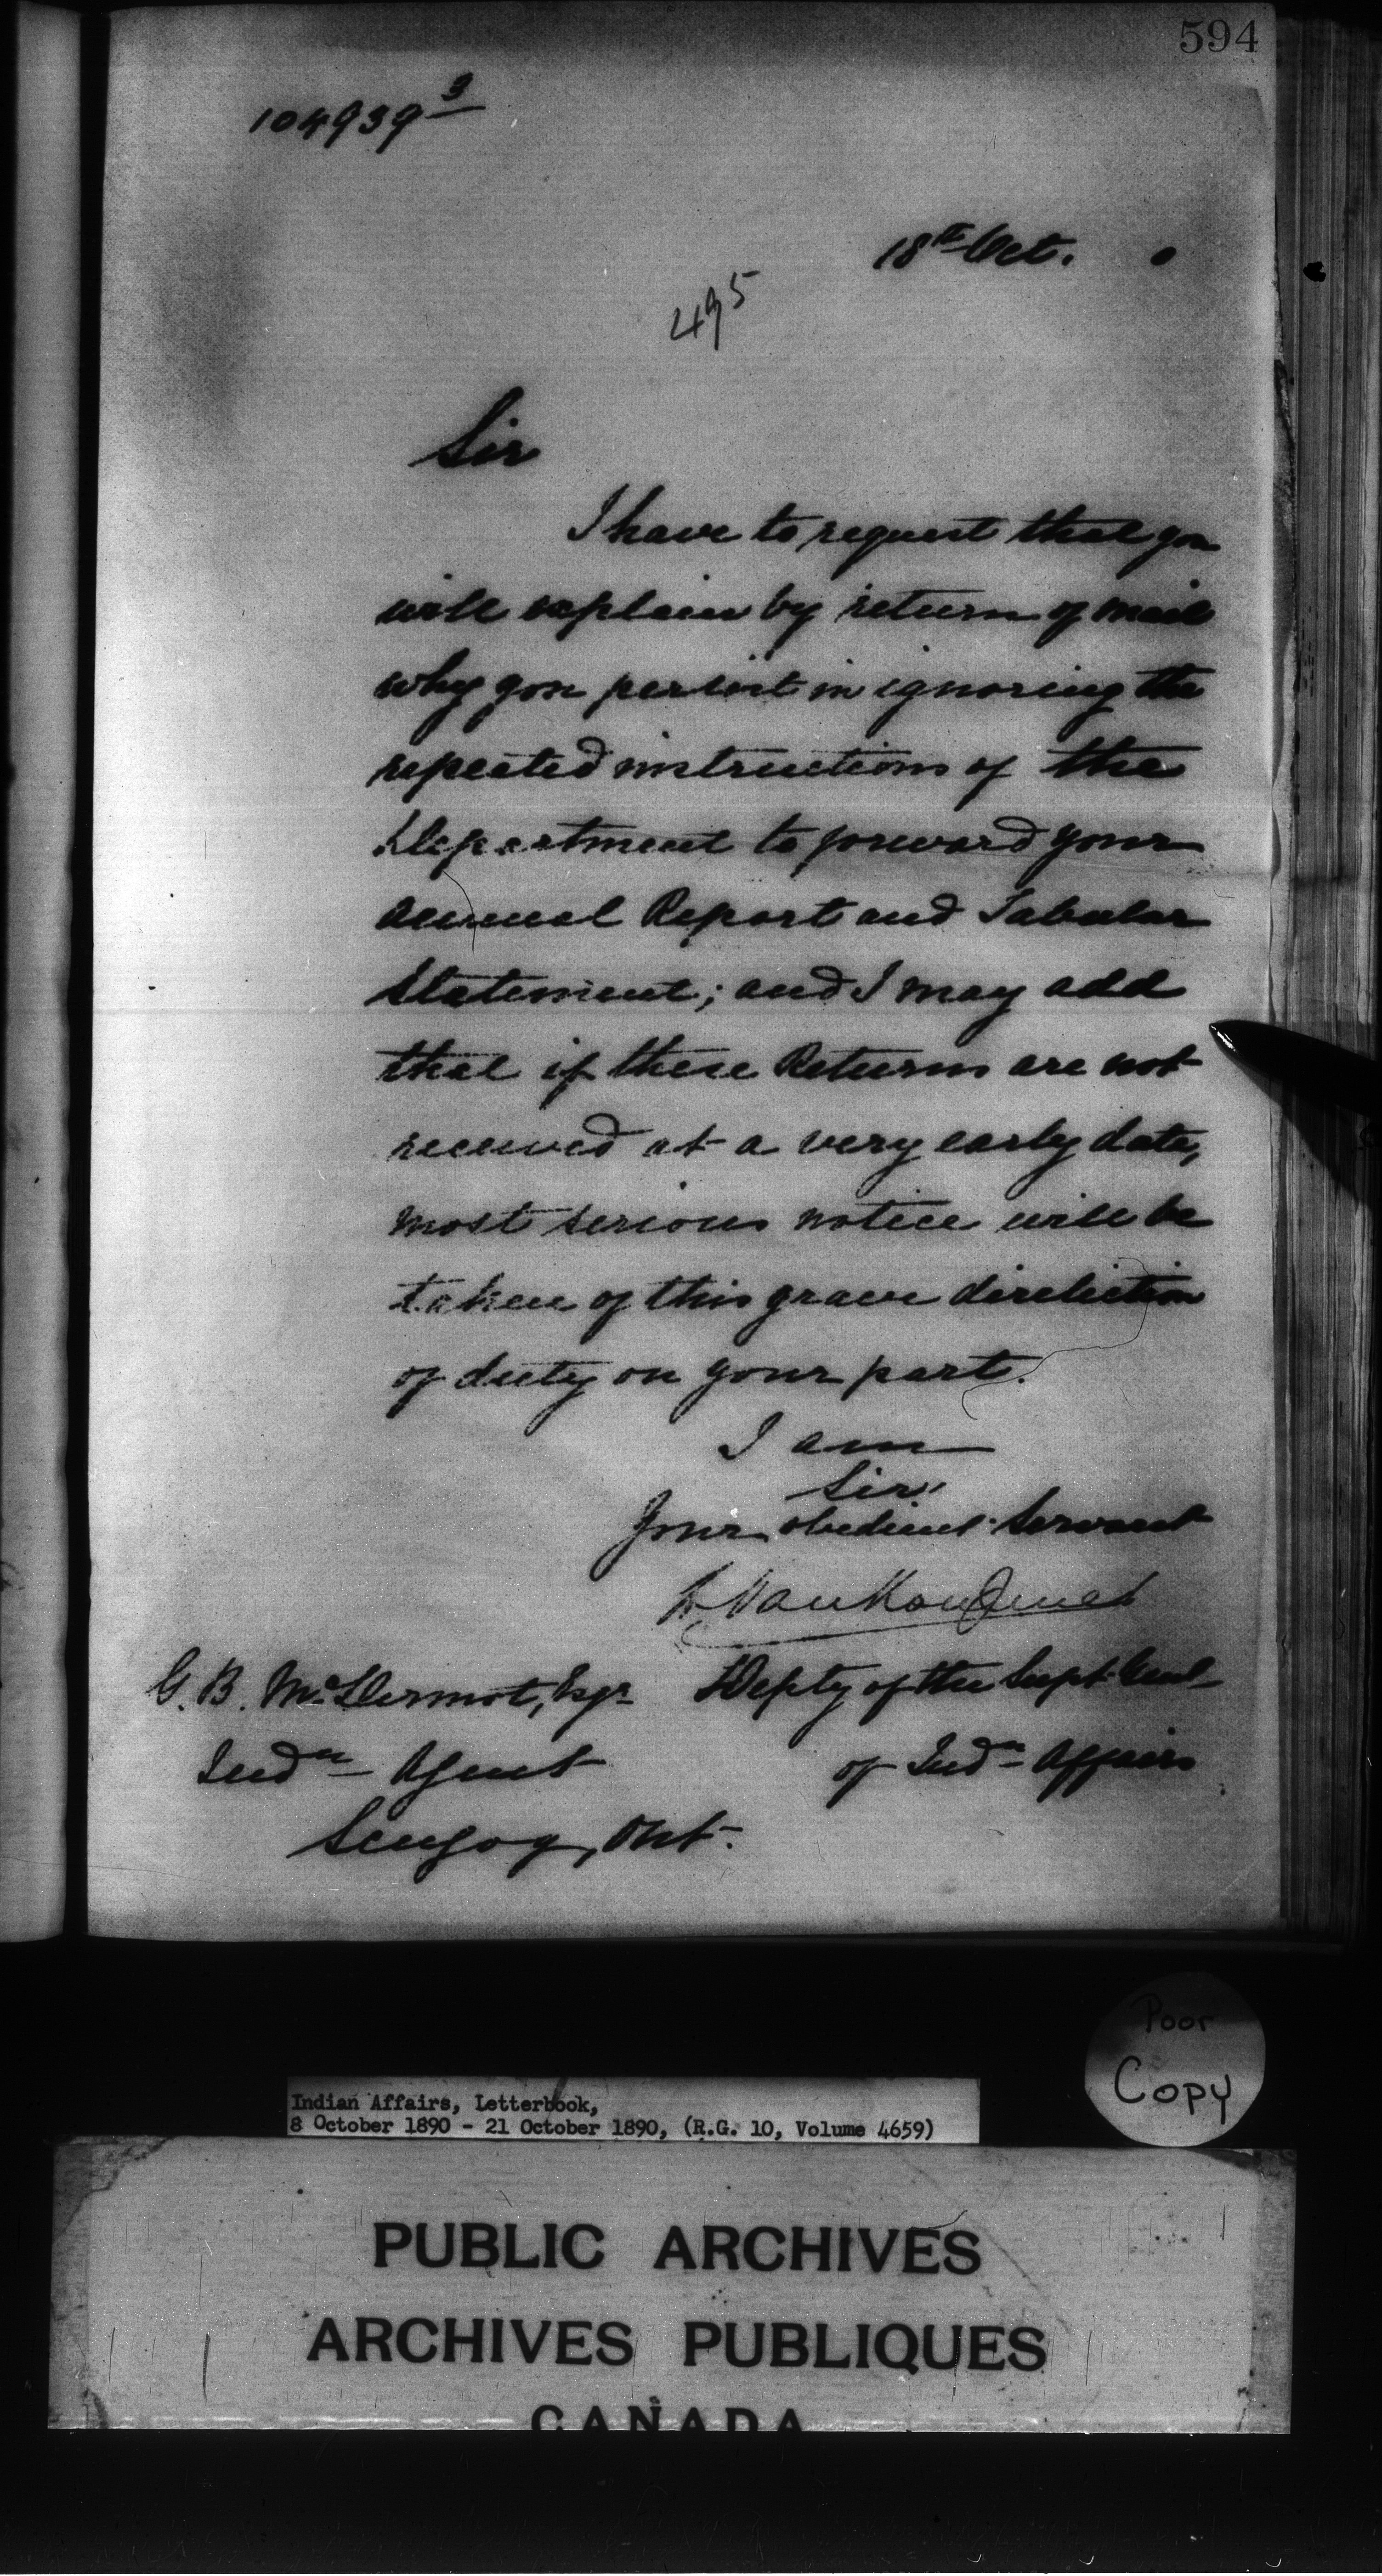 594
104939 3
18th Oct. 0
495
Sir
I have to request that you
will explain by return of mail
why you persist in ignoring the
repeated instructions of the
Department to forward your
Annual Report and Tabular
Statement; and I may add
that if these Returns are not
received at a very early date,
most serious notice will be
taken of this grave direliction
of duty on your part.
I am
Sir,
Your obedient Servant
L. VanKoughnet
G. B. McDermot, Esqr. Depty of the Supt. Genl
Indn Agent of Indn Affairs
Scugog, Ont.
Poor
Copy
Indian Affairs, Letterbook,
8 October 1890 - 21 October 1890, (R.G. 10, Volume 4659)
PUBLIC ARCHIVES
ARCHIVES PUBLIQUES
CANADA